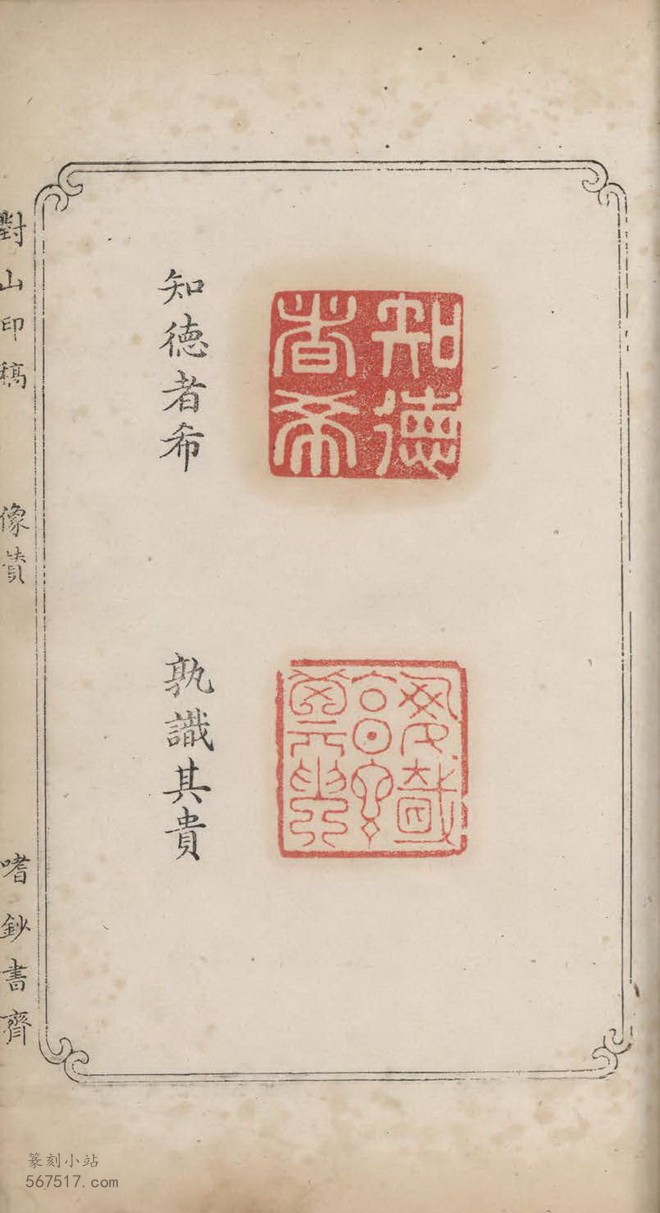 知德者希
知德者希
孰識其貴
對山印稿 像贊 嗜鈔書齋
篆刻小站
567517.com